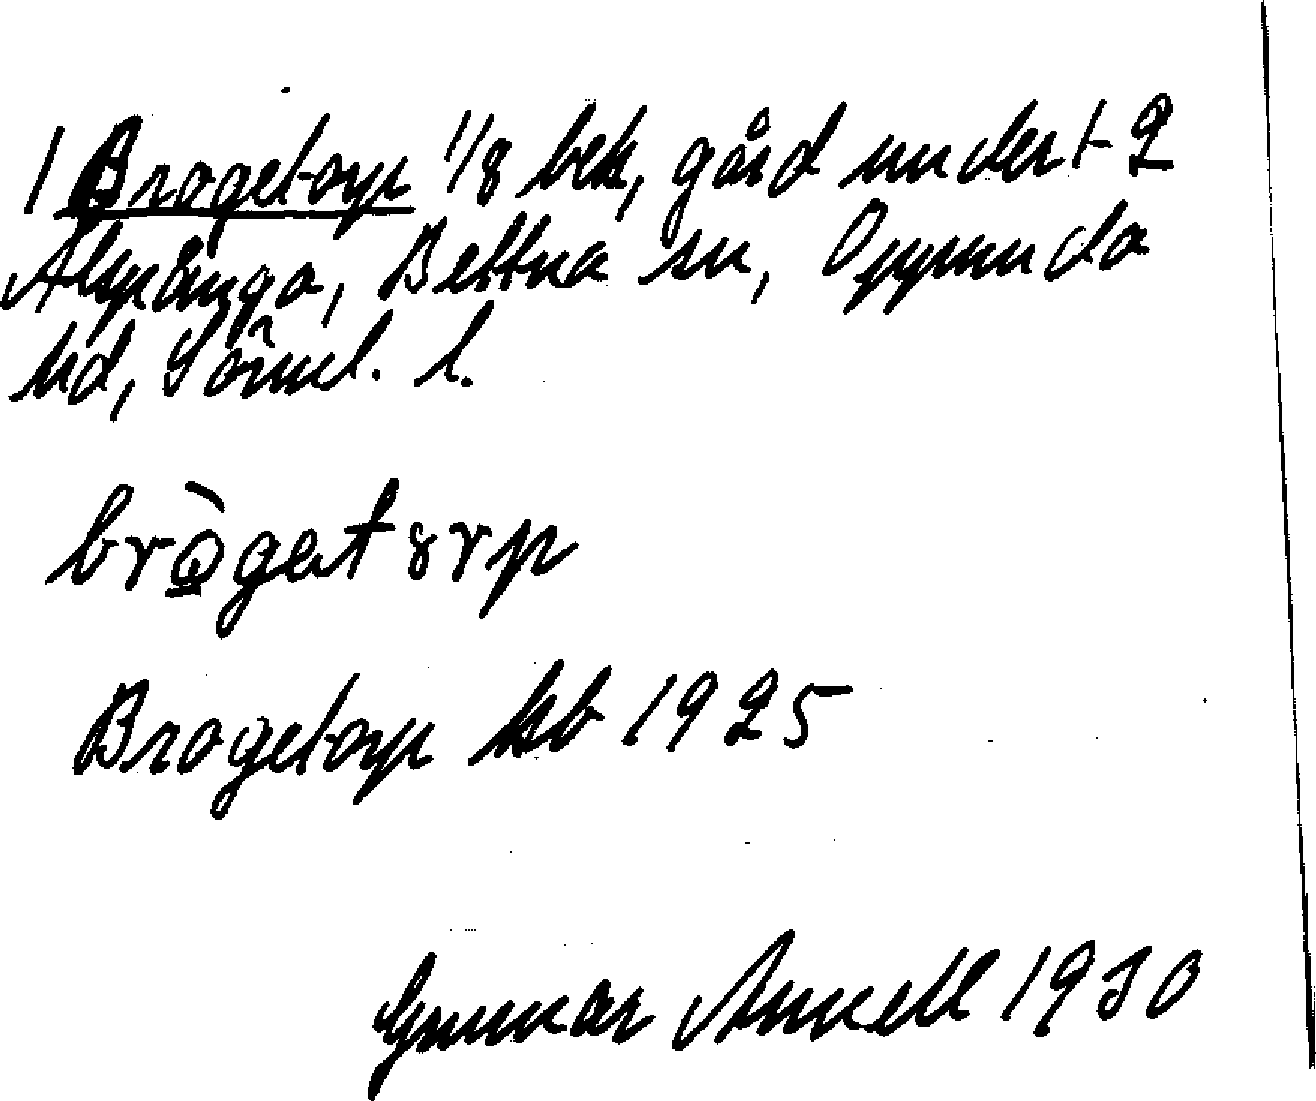 1 Brogetorp 1/8 bek, gård under 1-2
Alspånga, Bettna sn, Oppunda
hd, Söml. l.
brògetorp
Brogetorp kb 1925
Gunnar Annell 1930